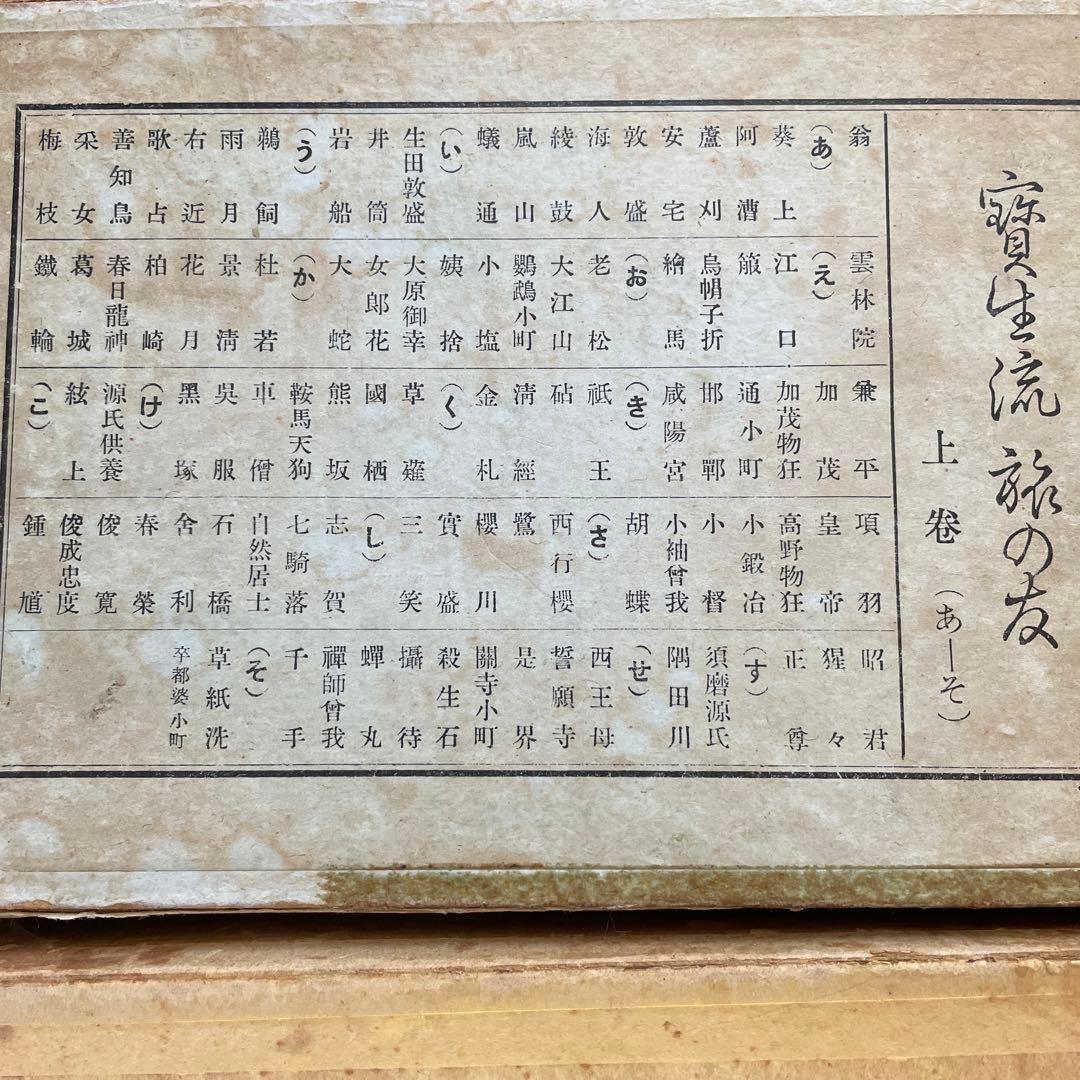 寶生流 旅の友
上卷（あーそ）
翁
（あ）
葵上
阿漕
蘆刈
安宅
敦盛
海人
綾鼓
嵐山
蟻通
（い）
生田敦盛
井筒
岩船
（う）
鵜飼
雨月
右近
歌占
善知鳥
采女
梅枝
雲林院
（え）
江口
箙
烏帽子折
繪馬
（お）
老松
大江山
鸚鵡小町
小塩
姨捨
大原御幸
女郎花
大蛇
（か）
杜若
景淸
花月
柏崎
春日龍神
葛城
鐵輪
兼平
加茂
加茂物狂
通小町
邯鄲
咸陽宮
（き）
祇王
砧
淸經
金札
（く）
草薙
國栖
熊坂
鞍馬天狗
車僧
吳服
黑塚
（け）
源氏供養
絃上
（こ）
項羽
皇帝
高野物狂
小鍛冶
小督
小袖曾我
胡蝶
（さ）
西行櫻
鷺
櫻川
實盛
三笑
（し）
志賀
七騎落
自然居士
石橋
舍利
春榮
俊寬
俊成忠度
鍾馗
昭君
猩々
正尊
（す）
須磨源氏
隅田川
（せ）
西王母
誓願寺
是界
關寺小町
殺生石
攝待
蟬丸
禪師曾我
千手
（そ）
草紙洗
卒都婆小町